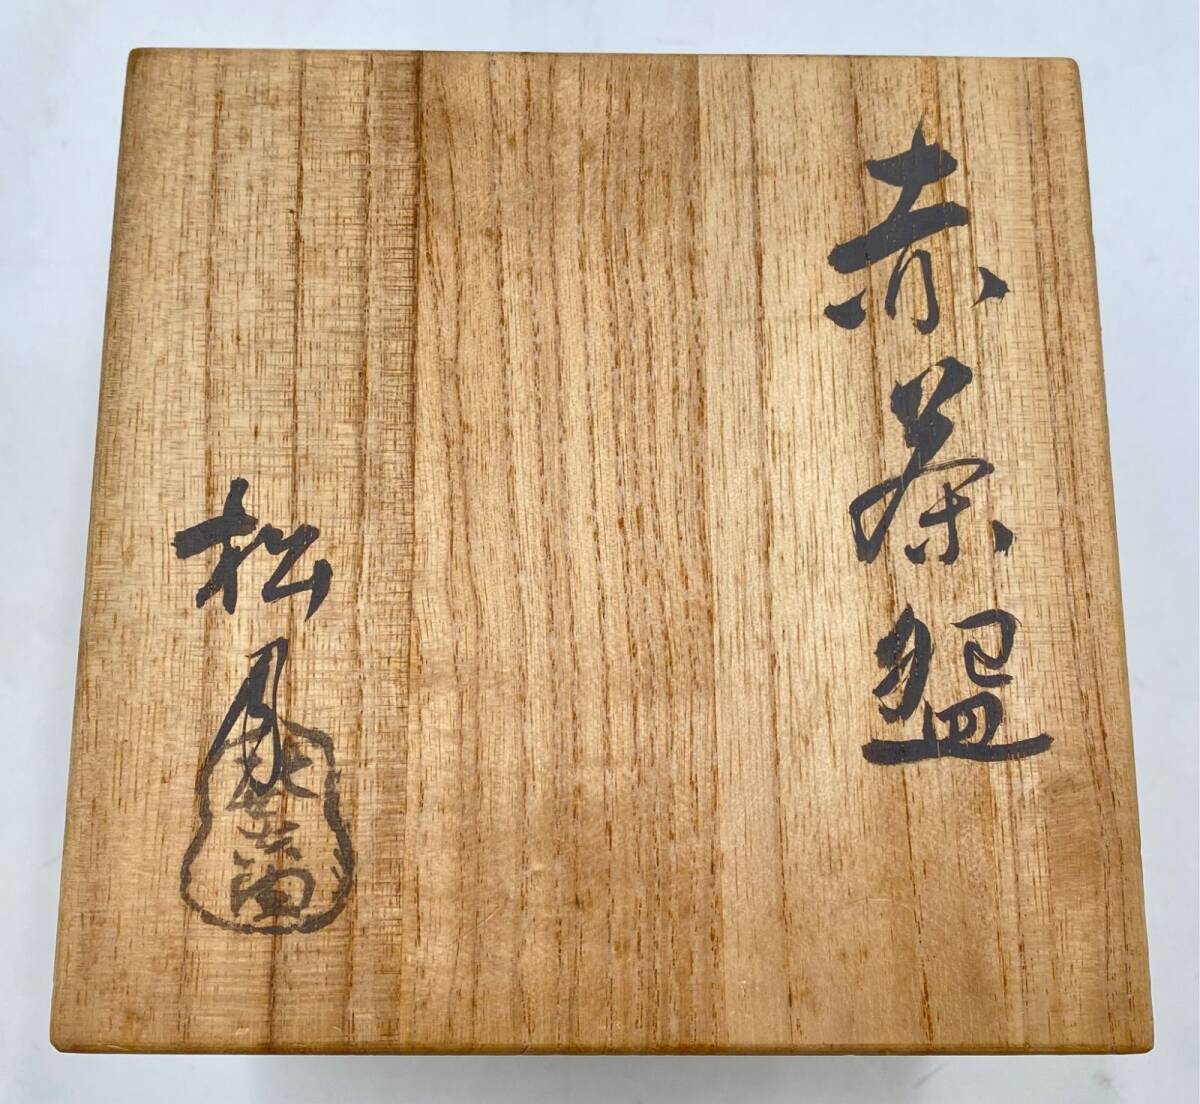 赤茶盌
松月